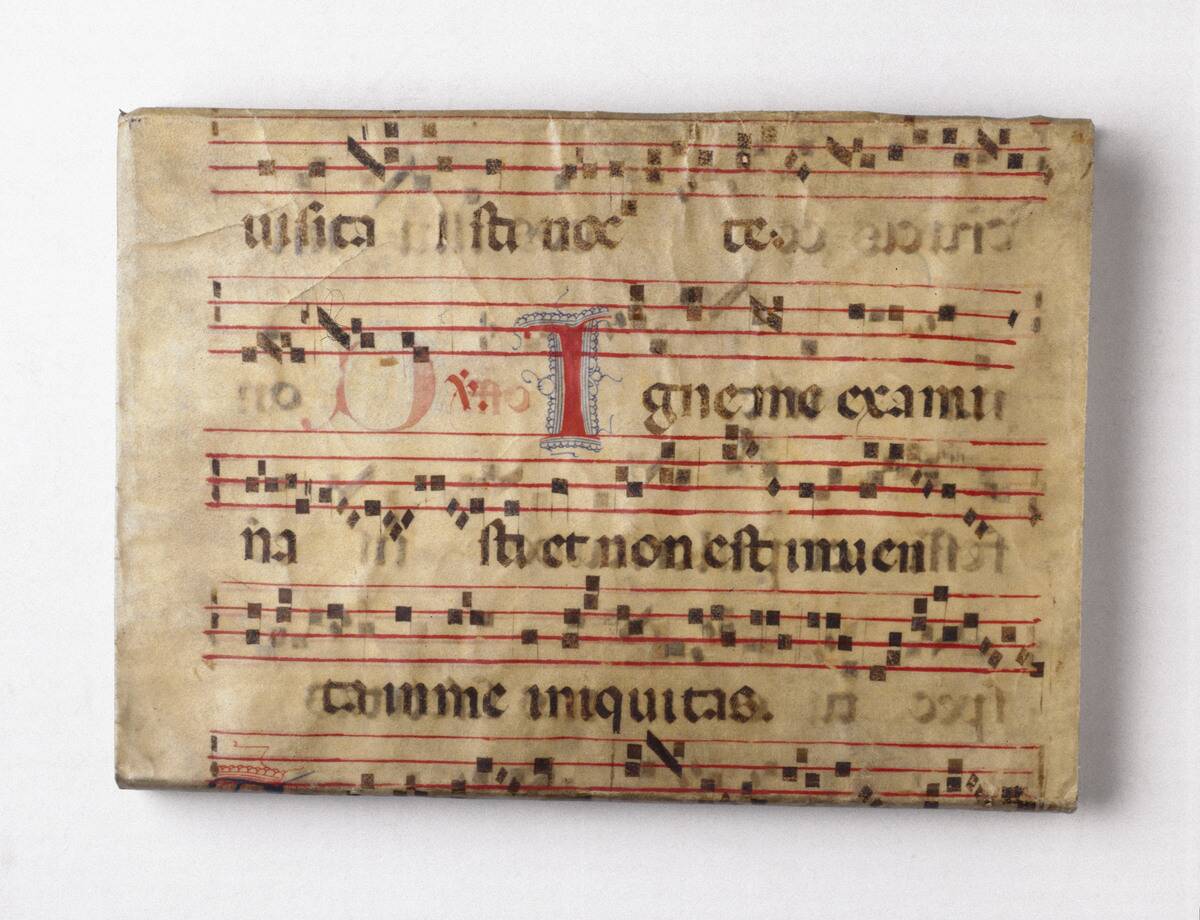 uisita sti noc te.
℣. I gne me exami
na sti et non est inuen
ta in me iniquitas.